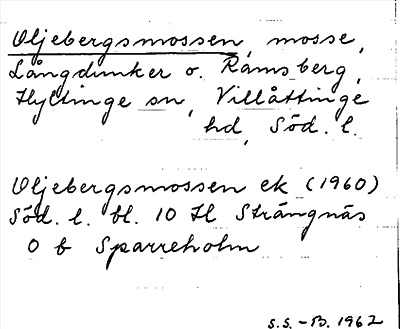 Oljebergsmossen, mosse,
Långdunker o. Ramsberg,
Hyltinge sn, Villåttinge
hd, Söd. l.
Oljebergsmossen ek (1960)
Söd. l. bl. 10 H Strängnäs
0 b Sparreholm
S.S. - B. 1962